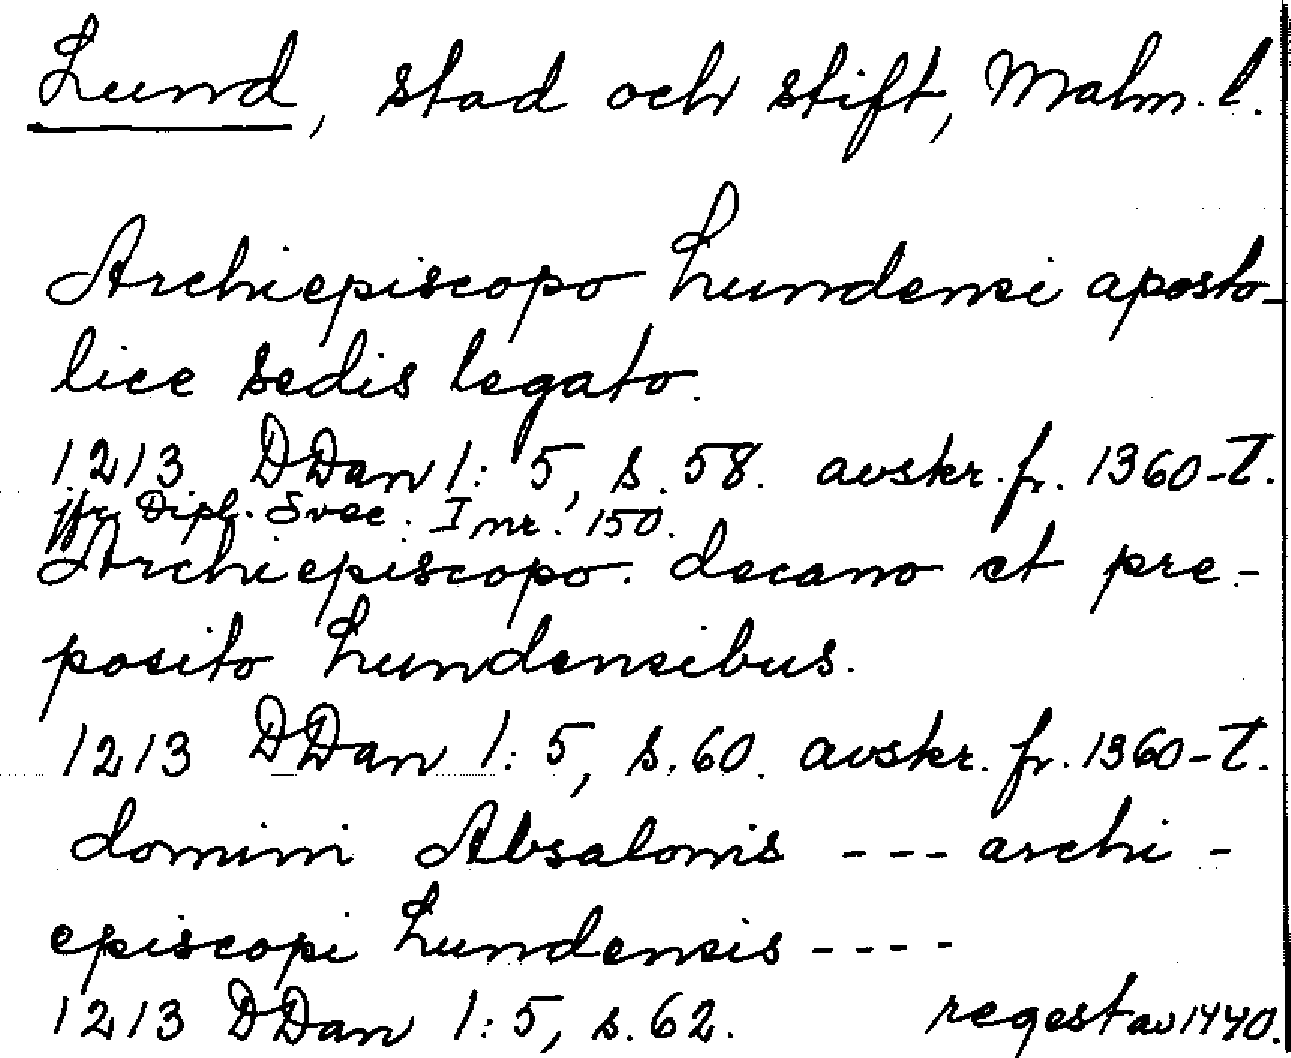 Lund, stad och stift, Malm. l.
Archiepiscopo Lundensi aposto-
lice sedis legato.
1213 DDan 1:5, s. 58. avskr. fr. 1360-t.
jfr Dipl. Svec. I nr. 150.
Archiepiscopo. decano et pre-
posito Lundensibus.
1213 DDan 1:5, s. 60. avskr. fr. 1360-t.
domini Absalonis --- archi-
episcopi Lundensis ----
1213 DDan 1:5, s. 62. regest av 1440.